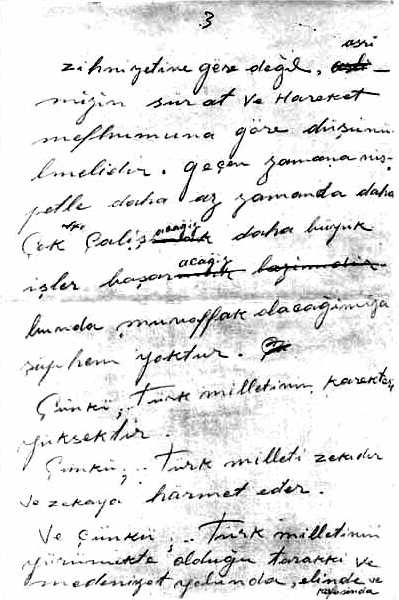 3
asri
zihniyetine göre değil,
mizin sür'at ve Hareket
mefhumuna göre düşünü
lmelidir. Geçen zamana nis-
petle daha az zamanda daha
acağız
Çok Çalış daha büyük
acağız
işler başar lazimdir
bunda muvaffak olacağimiza
şüphem yoktur.
Çünkü, Türk milletinin karakteri
yüksektir.
Çünkü, Türk milleti zekidir
ve zekaya hürmet eder.
Ve Çünkü, Türk milletinin
yürümekte olduğu tarakki ve
medeniyet yolunda, elinde ve
kafasinda